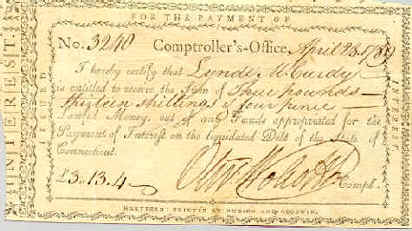 FOR THE PAYMENT OF
No. 3240 Comptroller's-Office, April 28 1789
I hereby certify that Lynde McCurdy
is entitled to receive the Sum of Three pounds
thirteen shillings & four pence
Lawful Money, out of any Funds appropriated for the
Payment of Interest on the liquidated Debt of the State of
Connecticut.
£3.13.4 Oliv Wolcott Jr Compt.
HARTFORD: PRINTED BY HUDSON AND GOODWIN.
INTEREST
ISSUED
INTEREST